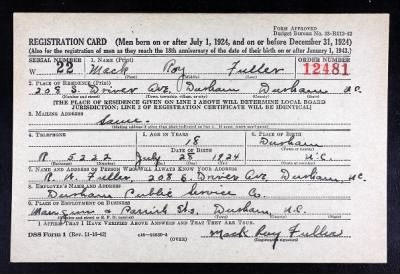 FORM APPROVED
Budget Bureau No. 33-R012-42
REGISTRATION CARD (Men born on or after July 1, 1924, and on or before December 31, 1924)
(Also for the registration of men as they reach the 18th anniversary of the date of their birth on or after January 1, 1943.)
SERIAL NUMBER 1. NAME (Print) ORDER NUMBER
W 22 Mack Roy Fuller 12481
(First) (Middle) (Last)
2. PLACE OF RESIDENCE (Print)
208 S. Driver Ave. Durham Durham N.C.
(Number and street) (Town, township, village, or city) (County) (State)
[THE PLACE OF RESIDENCE GIVEN ON LINE 2 ABOVE WILL DETERMINE LOCAL BOARD
JURISDICTION; LINE 2 OF REGISTRATION CERTIFICATE WILL BE IDENTICAL]
3. MAILING ADDRESS
Same.
[Mailing address if other than place indicated on line 2. If same, insert word same]
4. TELEPHONE 5. AGE IN YEARS 6. PLACE OF BIRTH
18 Durham
DATE OF BIRTH
R 5222 July 28 1924 N.C.
7. NAME AND ADDRESS OF PERSON WHO WILL ALWAYS KNOW YOUR ADDRESS
R. H. Fuller, 208 S. Driver Ave Durham N.C.
8. EMPLOYER'S NAME AND ADDRESS
Durham Public Service Co.
9. PLACE OF EMPLOYMENT OR BUSINESS
Mangum & Parrish Sts. Durham N.C.
I AFFIRM THAT I HAVE VERIFIED ABOVE ANSWERS AND THAT THEY ARE TRUE.
DSS Form 1 (Rev. 11-16-42) (OVER) Mack Roy Fuller
(Registrant's signature)